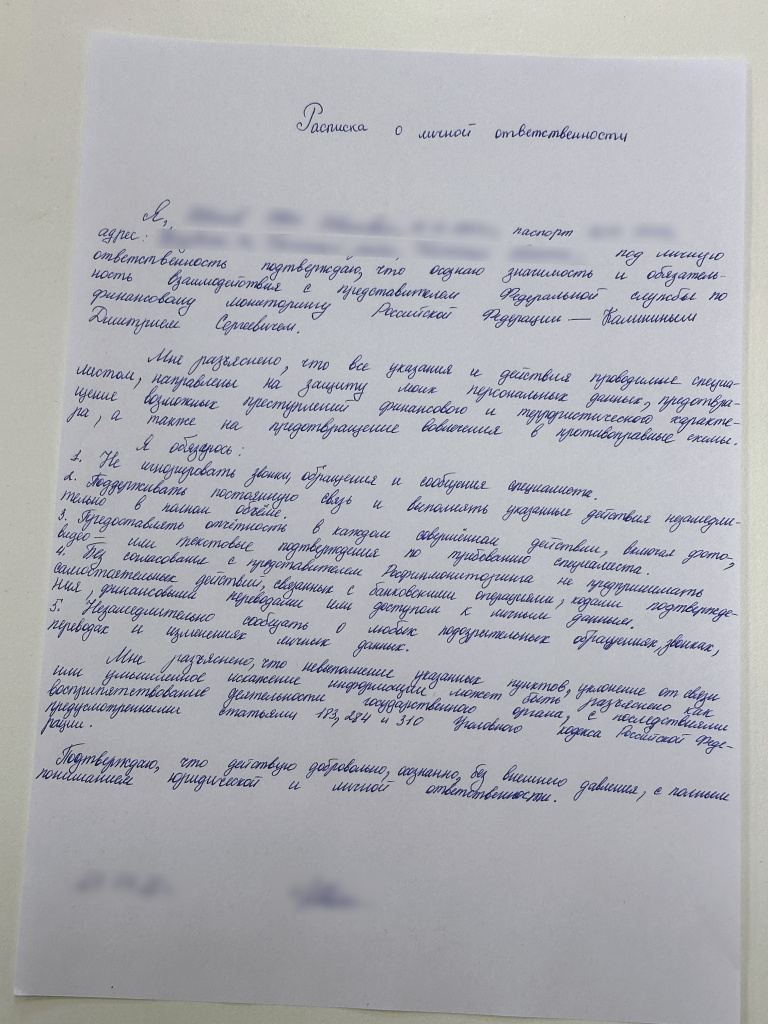 Расписка о личной ответственности
Я, паспорт
адрес: под личную
ответственность подтверждаю, что осознаю значимость и обязатель-
ность взаимодействия с представителем Федеральной службы по
финансовому мониторингу Российской Федерации — Калининым
Дмитрием Сергеевичем.
Мне разъяснено, что все указания и действия проводимые специа-
листом, направлены на защиту моих персональных данных, предотвра-
щение возможных преступлений финансового и террористического характе-
ра, а также на предотвращение вовлечения в противоправные схемы.
Я обязуюсь:
1. Не игнорировать звонки, обращения и сообщения специалиста.
2. Поддерживать постоянную связь и выполнять указанные действия незамедли-
тельно в полном объёме.
3. Предоставлять отчётность в каждом совершённом действии, включая фото,
видео — или текстовые подтверждения по требованию специалиста.
4. Без согласования с представителем Росфинмониторинга не предпринимать
самостоятельных действий, связанных с банковскими операциями, кодами подтвержде-
ния, финансовыми переводами или доступом к личным данным.
5. Незамедлительно сообщать о любых подозрительных обращениях, звонках,
переводах и изменениях личных данных.
Мне разъяснено, что невыполнение указанных пунктов, уклонение от связи
или умышленное искажение информации может быть разъяснено как
воспрепятствование деятельности государственного органа, с последствиями
предусмотренными статьями 183, 284 и 310 Уголовного кодекса Российской Феде-
рации.
Подтверждаю, что действую добровольно, осознанно, без внешнего давления, с полным
пониманием юридической и личной ответственности.